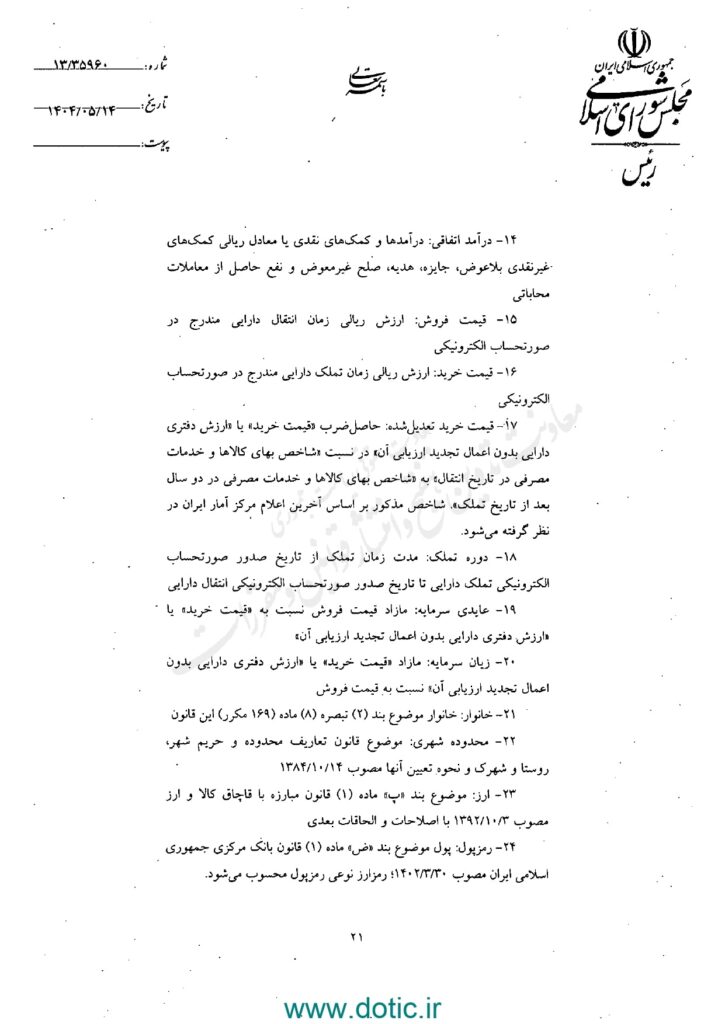 جمهوری اسلامی ایران
مجلس شورای اسلامی
رئیس
باسمه تعالی
شماره: ۱۳/۳۵۹۶۰
تاریخ: ۱۴۰۴/۰۵/۱۴
پیوست:
۱۴- درآمد اتفاقی: درآمدها و کمک‌های نقدی یا معادل ریالی کمک‌های
غیرنقدی بلاعوض، جایزه، هدیه، صلح غیرمعوض و نفع حاصل از معاملات
محاباتی
۱۵- قیمت فروش: ارزش ریالی زمان انتقال دارایی مندرج در
صورتحساب الکترونیکی
۱۶- قیمت خرید: ارزش ریالی زمان تملک دارایی مندرج در صورتحساب
الکترونیکی
۱۷- قیمت خرید تعدیل‌شده: حاصل‌ضرب «قیمت خرید» یا «ارزش دفتری
دارایی بدون اعمال تجدید ارزیابی آن» در نسبت «شاخص بهای کالاها و خدمات
مصرفی در تاریخ انتقال» به «شاخص بهای کالاها و خدمات مصرفی در دو سال
بعد از تاریخ تملک». شاخص مذکور بر اساس آخرین اعلام مرکز آمار ایران در
نظر گرفته می‌شود.
۱۸- دوره تملک: مدت زمان تملک از تاریخ صدور صورتحساب
الکترونیکی تملک دارایی تا تاریخ صدور صورتحساب الکترونیکی انتقال دارایی
۱۹- عایدی سرمایه: مازاد قیمت فروش نسبت به «قیمت خرید» یا
«ارزش دفتری دارایی بدون اعمال تجدید ارزیابی آن»
۲۰- زیان سرمایه: مازاد «قیمت خرید» یا «ارزش دفتری دارایی بدون
اعمال تجدید ارزیابی آن» نسبت به قیمت فروش
۲۱- خانوار: خانوار موضوع بند (۲) تبصره (۸) ماده (۱۶۹ مکرر) این قانون
۲۲- محدوده شهری: موضوع قانون تعاریف محدوده و حریم شهر،
روستا و شهرک و نحوه تعیین آنها مصوب ۱۳۸۴/۱۰/۱۴
۲۳- ارز: موضوع بند «پ» ماده (۱) قانون مبارزه با قاچاق کالا و ارز
مصوب ۱۳۹۲/۱۰/۳ با اصلاحات و الحاقات بعدی
۲۴- رمزپول: پول موضوع بند «ض» ماده (۱) قانون بانک مرکزی جمهوری
اسلامی ایران مصوب ۱۴۰۲/۳/۳۰؛ رمزارز نوعی رمزپول محسوب می‌شود.
۲۱
www.dotic.ir